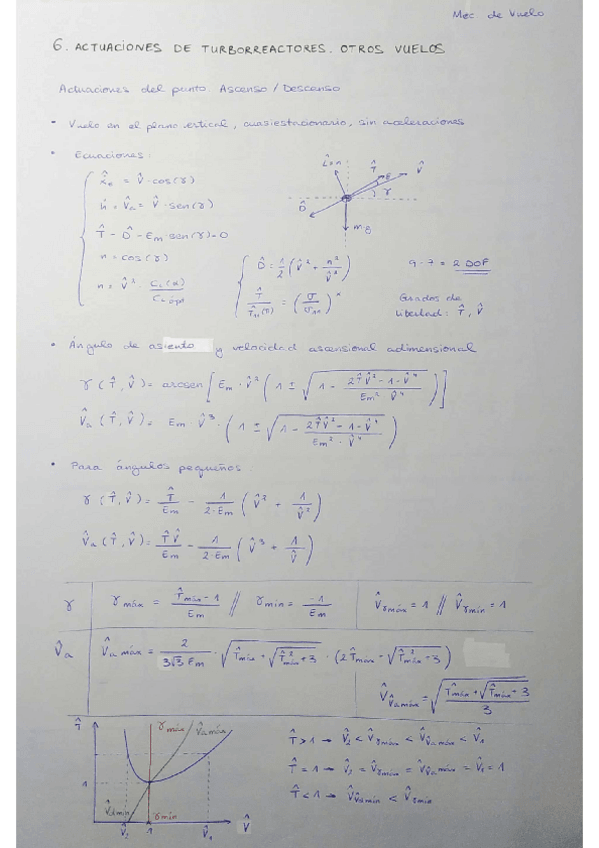 Mec de Vuelo
6. ACTUACIONES DE TURBORREACTORES. OTROS VUELOS
Actuaciones del punto Ascenso / Descenso
- Vuelo en el plano vertical, cuasiestacionario, sin aceleraciones
• Ecuaciones:
ẋ̂e = V̂ · cos(γ)
ĥ = V̂a = V̂ · sen(γ)
T̂ - D̂ - Em · sen(γ) = 0
n = cos(γ)
n = V̂² · CL(α) / CLópt
L̂ = n T̂ ε V̂ γ D̂ mg
D̂ = 1/2 (V̂² + n²/V̂²)
9 - 7 = 2 DOF
Grados de
libertad: T̂, V̂
• Ángulo de asiento y velocidad ascensional adimensional
γ (T̂, V̂) = arcsen [Em · V̂² (1 ± √(1 - (2T̂V̂² - 1 - V̂⁴) / (Em² V̂⁴)))]
V̂a (T̂, V̂) = Em · V̂³ · (1 ± √(1 - (2T̂V̂² - 1 - V̂⁴) / (Em² · V̂⁴)))
• Para ángulos pequeños:
γ (T̂, V̂) = T̂/Em - 1/(2·Em) (V̂² + 1/V̂²)
V̂a (T̂, V̂) = T̂V̂/Em - 1/(2·Em) (V̂³ + 1/V̂)
γ γmáx = (T̂máx - 1)/Em // γmin = -1/Em V̂γmáx = 1 // V̂γmin = 1
V̂a V̂a máx = 2/(3√3 Em) · √(T̂máx + √(T̂²máx + 3)) · (2T̂máx - √(T̂²máx + 3))
V̂V̂amáx = √((T̂máx + √(T̂máx + 3))/3)
T̂ γmáx V̂amáx
1
V̂amin γmin
V̂2 1 V̂1 V̂
T̂ > 1 → V̂2 < V̂γmáx < V̂V̂amáx < V̂1
T̂ = 1 → V̂2 = V̂γmáx = V̂V̂amáx = V̂1 = 1
T̂ < 1 → V̂V̂amin < V̂γmin